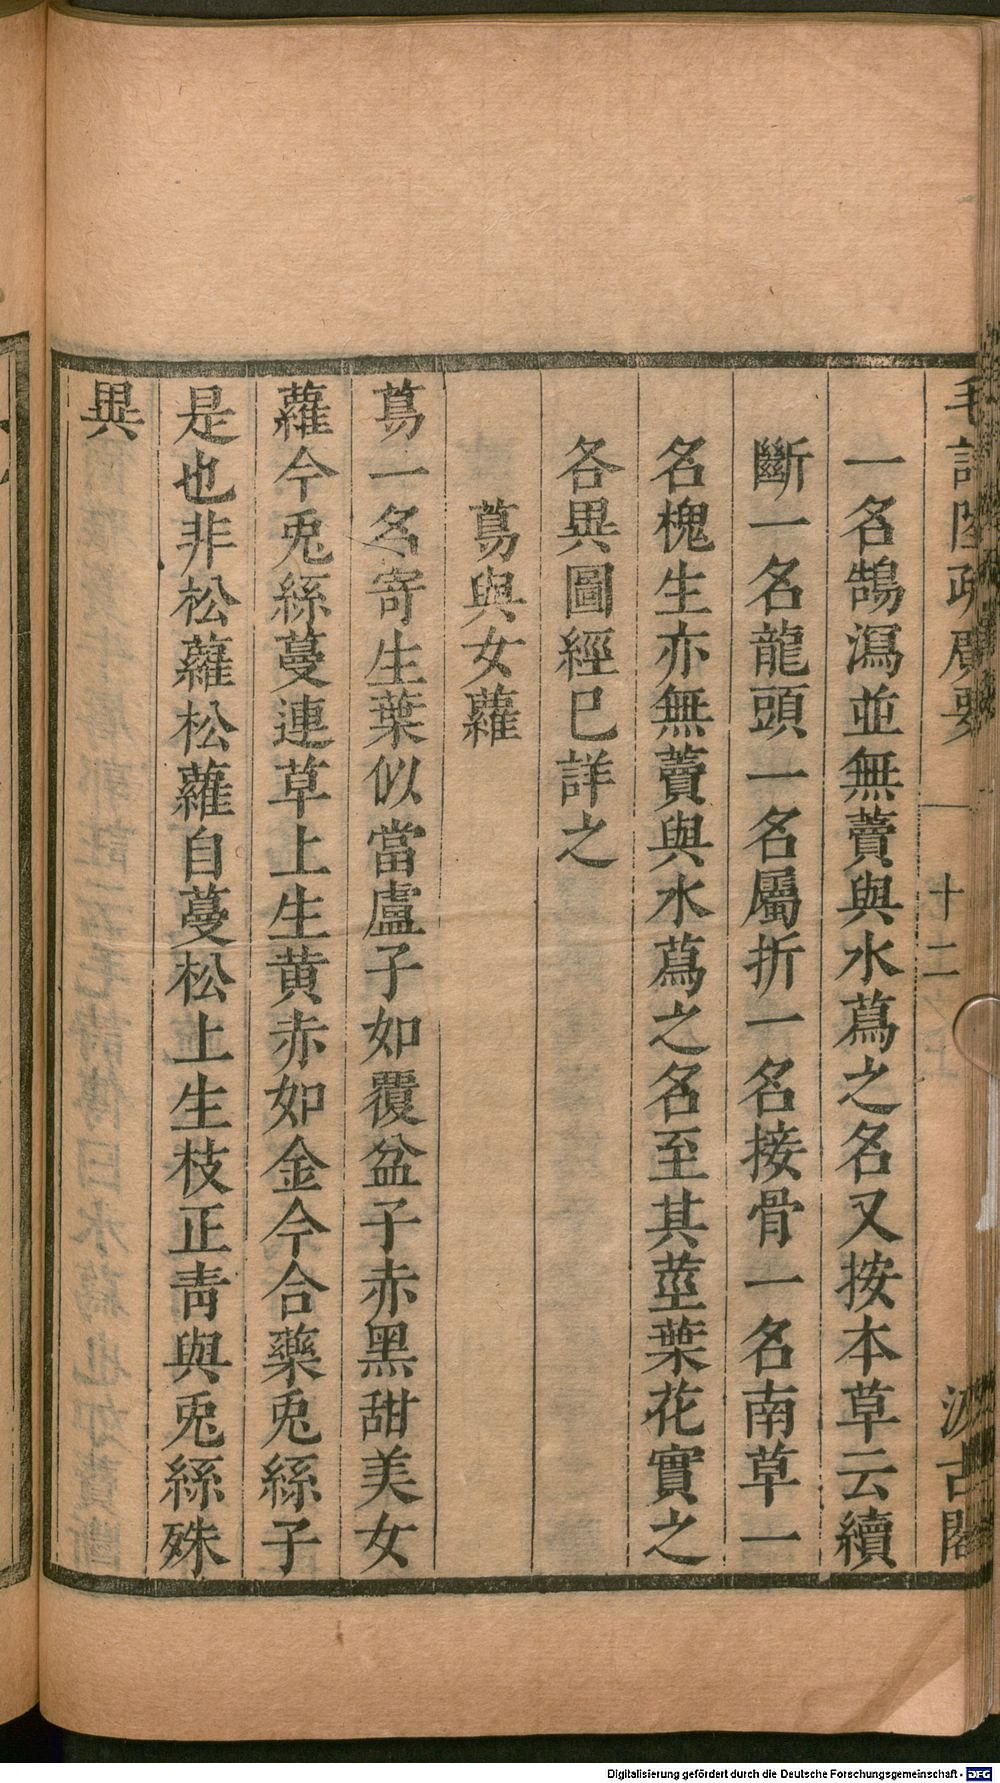 毛詩陸疏廣要 十二 汲古閣
一名鵠瀉並無藚與水蕮之名又按本草云續
斷一名龍頭一名屬折一名接骨一名南草一
名槐生亦無藚與水蕮之名至其莖葉花實之
各異圖經已詳之
蔦與女蘿
蔦一名寄生葉似當盧子如覆盆子赤黑甜美女
蘿今兎絲蔓連草上生黄赤如金今合藥兎絲子
是也非松蘿松蘿自蔓松上生枝正靑與兎絲殊
異
Digitalisierung gefördert durch die Deutsche Forschungsgemeinschaft - DFG